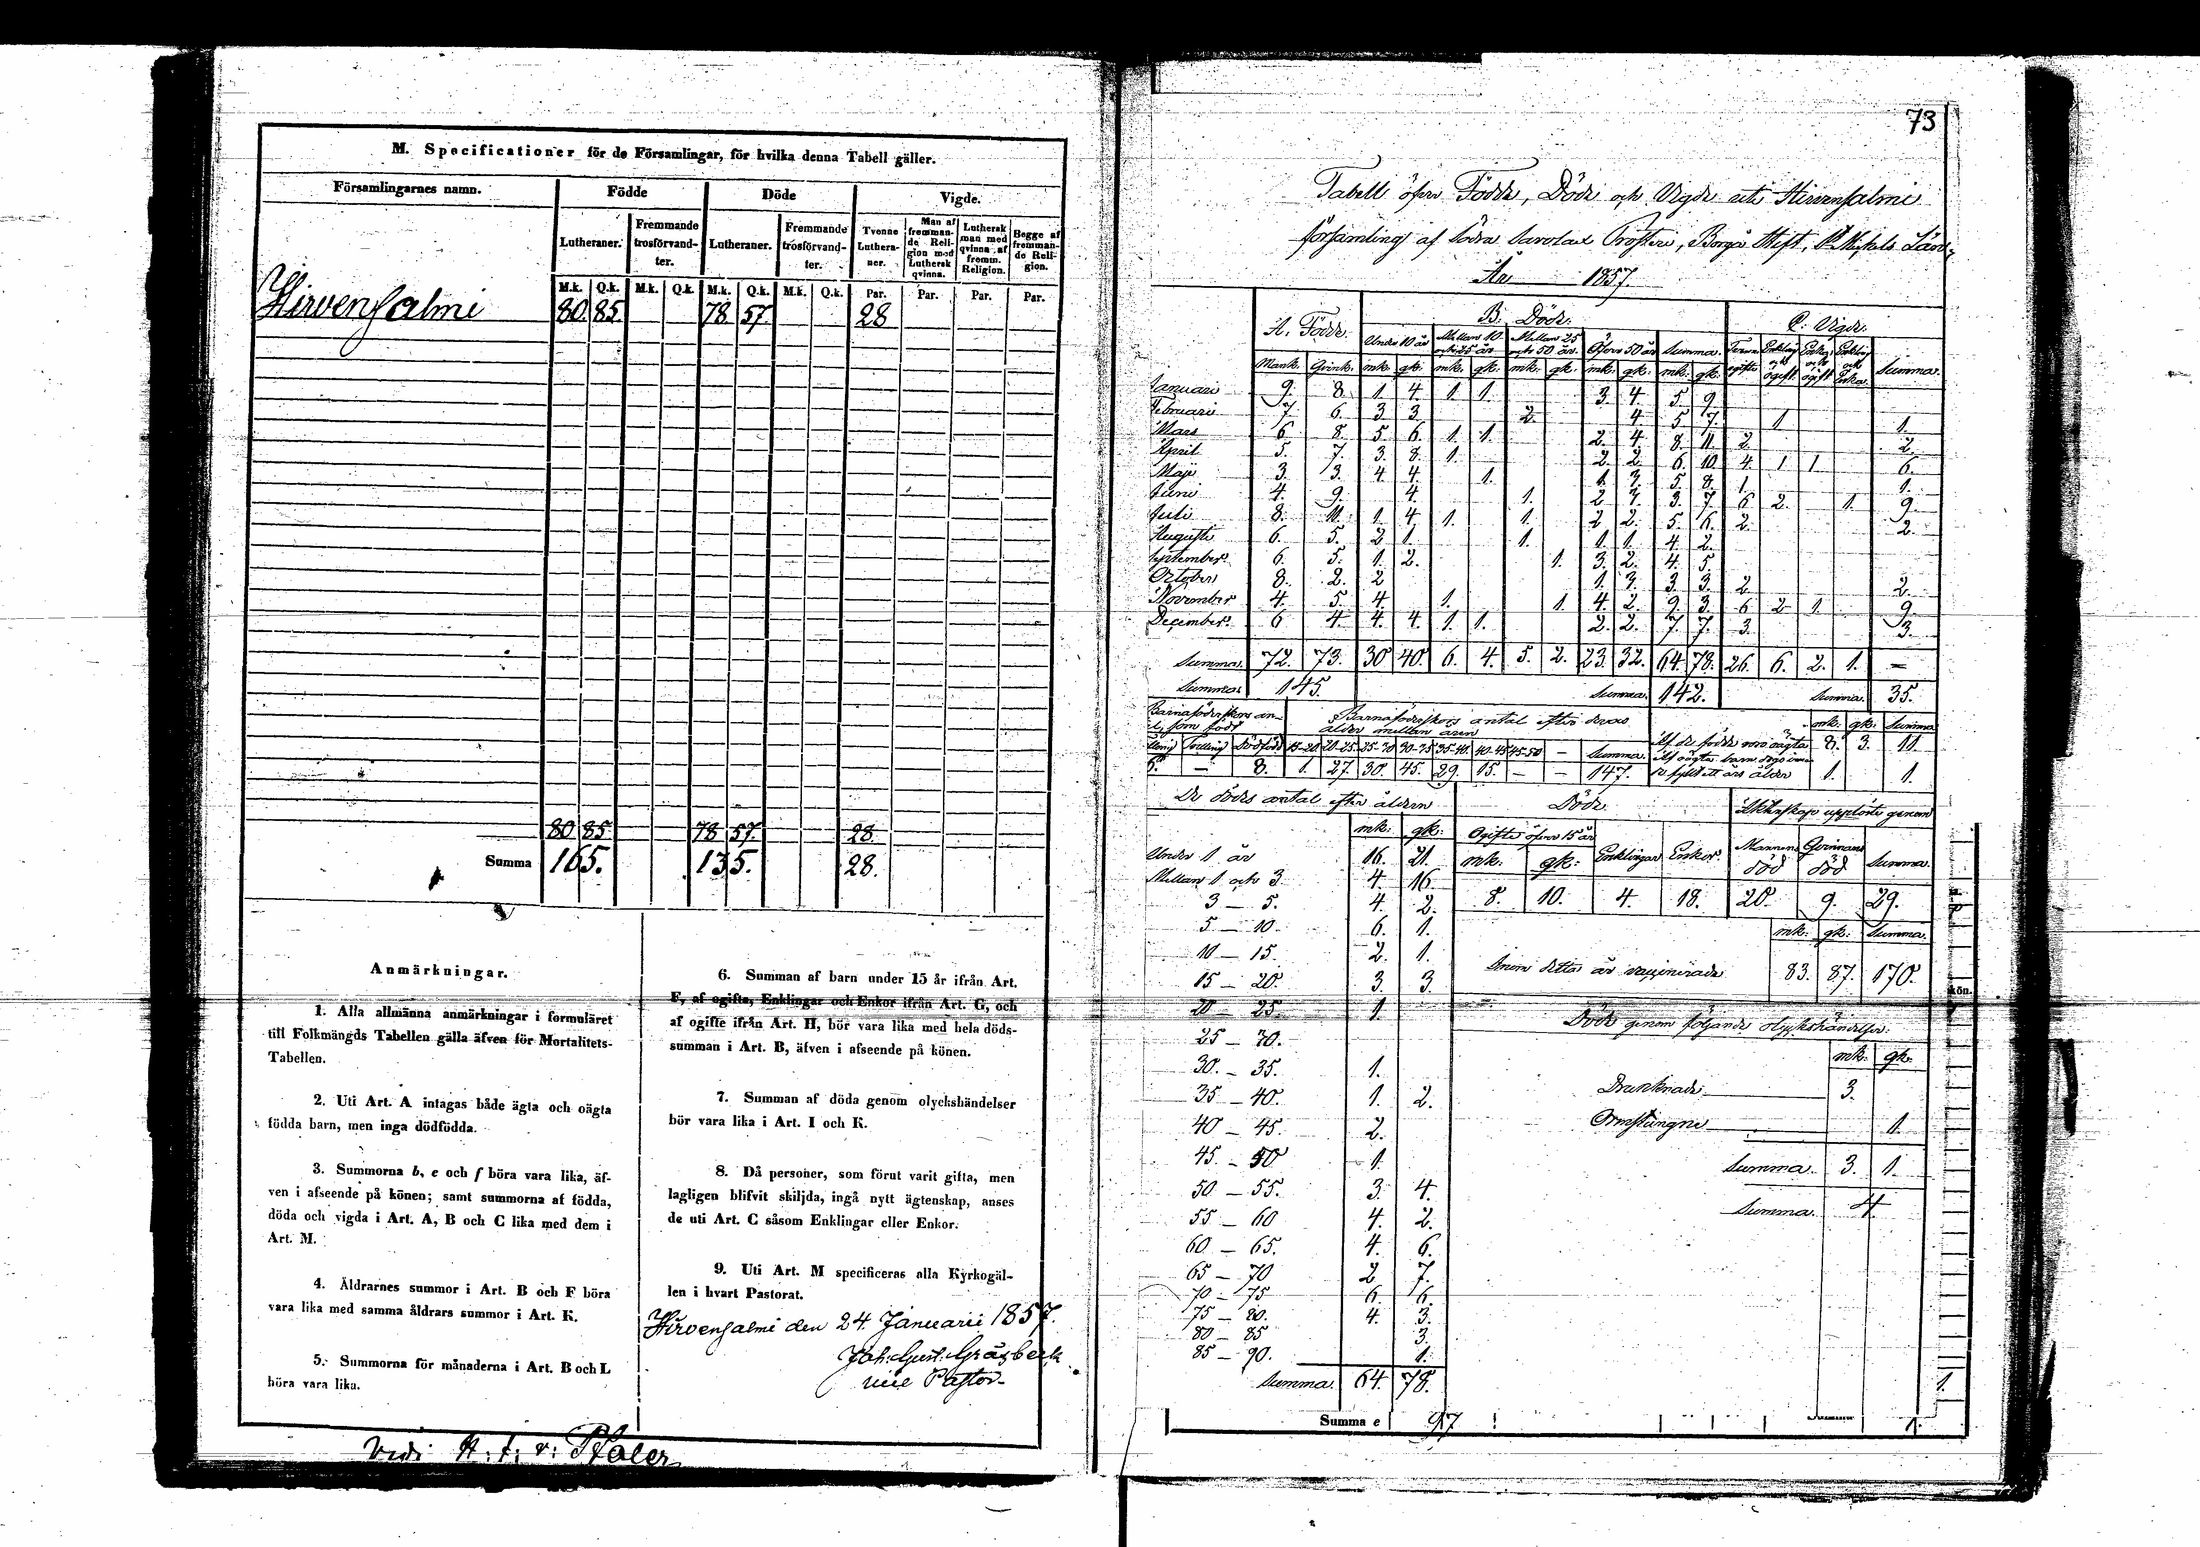 M. Specificationer för de Församlingar, för hvilka denna Tabell gäller.
Församlingarnes namn. Födde Döde Vigde.
Lutheraner. Fremmande trosförvandter. Lutheraner. Fremmande trosförvandter. Tvenne Lutheraner. Man af fremmande Religion med Luthersk qvinna. Luthersk man med qvinna af fremm. Religion. Begge af fremmande Religion.
M.k. Q.k. M.k. Q.k. M.k. Q.k. M.k. Q.k. Par. Par. Par. Par.
Hirvensalmi 80. 85. 78 57. 28
80 85. 78 57. 28.
Summa 165. 135. 28.
Anmärkningar.
1. Alla allmänna anmärkningar i formuläret
till Folkmängds Tabellen gälla äfven för Mortalitets-
Tabellen.
2. Uti Art. A intagas både ägta och oägta
födda barn, men inga dödfödda.
3. Summorna b, e och f böra vara lika, äf-
ven i afseende på könen; samt summorna af födda,
döda och vigda i Art. A, B och C lika med dem i
Art. M.
4. Äldrarnes summor i Art. B och F böra
vara lika med samma åldrars summor i Art. K.
5. Summorna för månaderna i Art. B och L
böra vara lika.
6. Summan af barn under 15 år ifrån Art.
F, af ogifta, Enklingar och Enkor ifrån Art. G, och
af ogifte ifrån Art. H, bör vara lika med hela döds-
summan i Art. B, äfven i afseende på könen.
7. Summan af döda genom olyckshändelser
bör vara lika i Art. I och K.
8. Då personer, som förut varit gifta, men
lagligen blifvit skiljda, ingå nytt ägtenskap, anses
de uti Art. C såsom Enklingar eller Enkor.
9. Uti Art. M specificeras alla Kyrkogäl-
len i hvart Pastorat.
Hirvensalmi den 24 Januarii 1857.
Vice Pastor.
73
Tabell öfver Födde, Döde och Vigde uti Hirvensalmi
församling af Södra Savolax Prosteri, Borgå Stift, St Michels Län,
År 1857.
A. Födde. B. Döde. C. Vigde.
Under 10 år Mellan 10 och 25 år Mellan 25 och 50 år. Öfver 50 år Summa.
Mank. Qvink. mk. qk. mk. qk. mk. qk. mk. qk. mk. qk. Summa.
Januari 9. 8. 1. 4. 1. 1. 3. 4. 5. 9.
Februari 7. 6. 3. 3. 2. 4. 5. 7. 1. 1.
Mars 6. 8. 5. 6. 1. 1. 2. 4. 8. 11. 2. 2.
April 5. 7. 3. 8. 1. 2. 2. 6. 10. 4. 1 1 6.
Maji 3. 3. 4. 4. 1. 1. 3. 5. 8. 1. 1.
Juni 4. 9. 4. 1. 2. 3. 3. 7. 6 2. 1. 9.
Juli 8. 11. 1. 4. 1. 1. 2 2. 5. 6. 2. 2.
Augusti 6. 5. 2 1. 1. 1. 1. 4. 2.
September 6. 5. 1. 2. 1. 3. 2. 4. 5.
October 8. 2. 2 1. 3. 3. 3. 2 2.
November 4. 5. 4. 1. 1. 4. 2. 9. 3. 6 2. 1. 9.
December 6 4. 4. 4. 1. 1. 2. 2. 7. 7. 3. 3.
Summa. 72. 73. 30 40. 6. 4. 5. 2. 23. 32. 64. 78. 26. 6. 2. 1. —
Summa 145. Summa. 142. Summa. 35.
Barnaföderskors antal efter deras
ålder mellan åren
mk. qk. Summa
15-20 20-25 25-30 30-35 35-40 40-45 45-50 — Summa.
6. — 8. 1. 27. 30. 45. 29. 15. — — 147.
Af de födde voro oägta 8. 3. 11.
ålder 1. 1.
De dödes antal efter åldern Döde. Äktenskap upplöste genom
mk. qk. Ogifte öfver 15 år
mk. qk. Enklingar Enkor. Mannens död Qvinnans död Summa.
8. 10. 4. 18. 20. 9. 29.
Under 1 år 16. 21.
Mellan 1 och 3 4. 16.
3 — 5. 4. 2.
5 — 10. 6. 1.
10 — 15. 2. 1.
15 — 20. 3. 3.
20 — 25. 1.
25 — 30.
30 — 35. 1.
35 — 40. 1. 2.
40 — 45. 2.
45 — 50 1.
50 — 55. 3. 4.
55 — 60 4. 2.
60 — 65. 4. 6.
65 — 70 2 7.
70 — 75 6. 6.
75 — 80. 4. 3.
80 — 85 3.
85 — 90. 1.
Summa 64. 78.
mk. qk. Summa.
Inom detta år vaccinerade 83. 87. 170.
Döde genom följande olyckshändelser.
mk. qk.
Drunknade 3.
Ormstungne 1.
Summa. 3. 1.
Summa. 4
kön.
Summa e 97
1.
1.